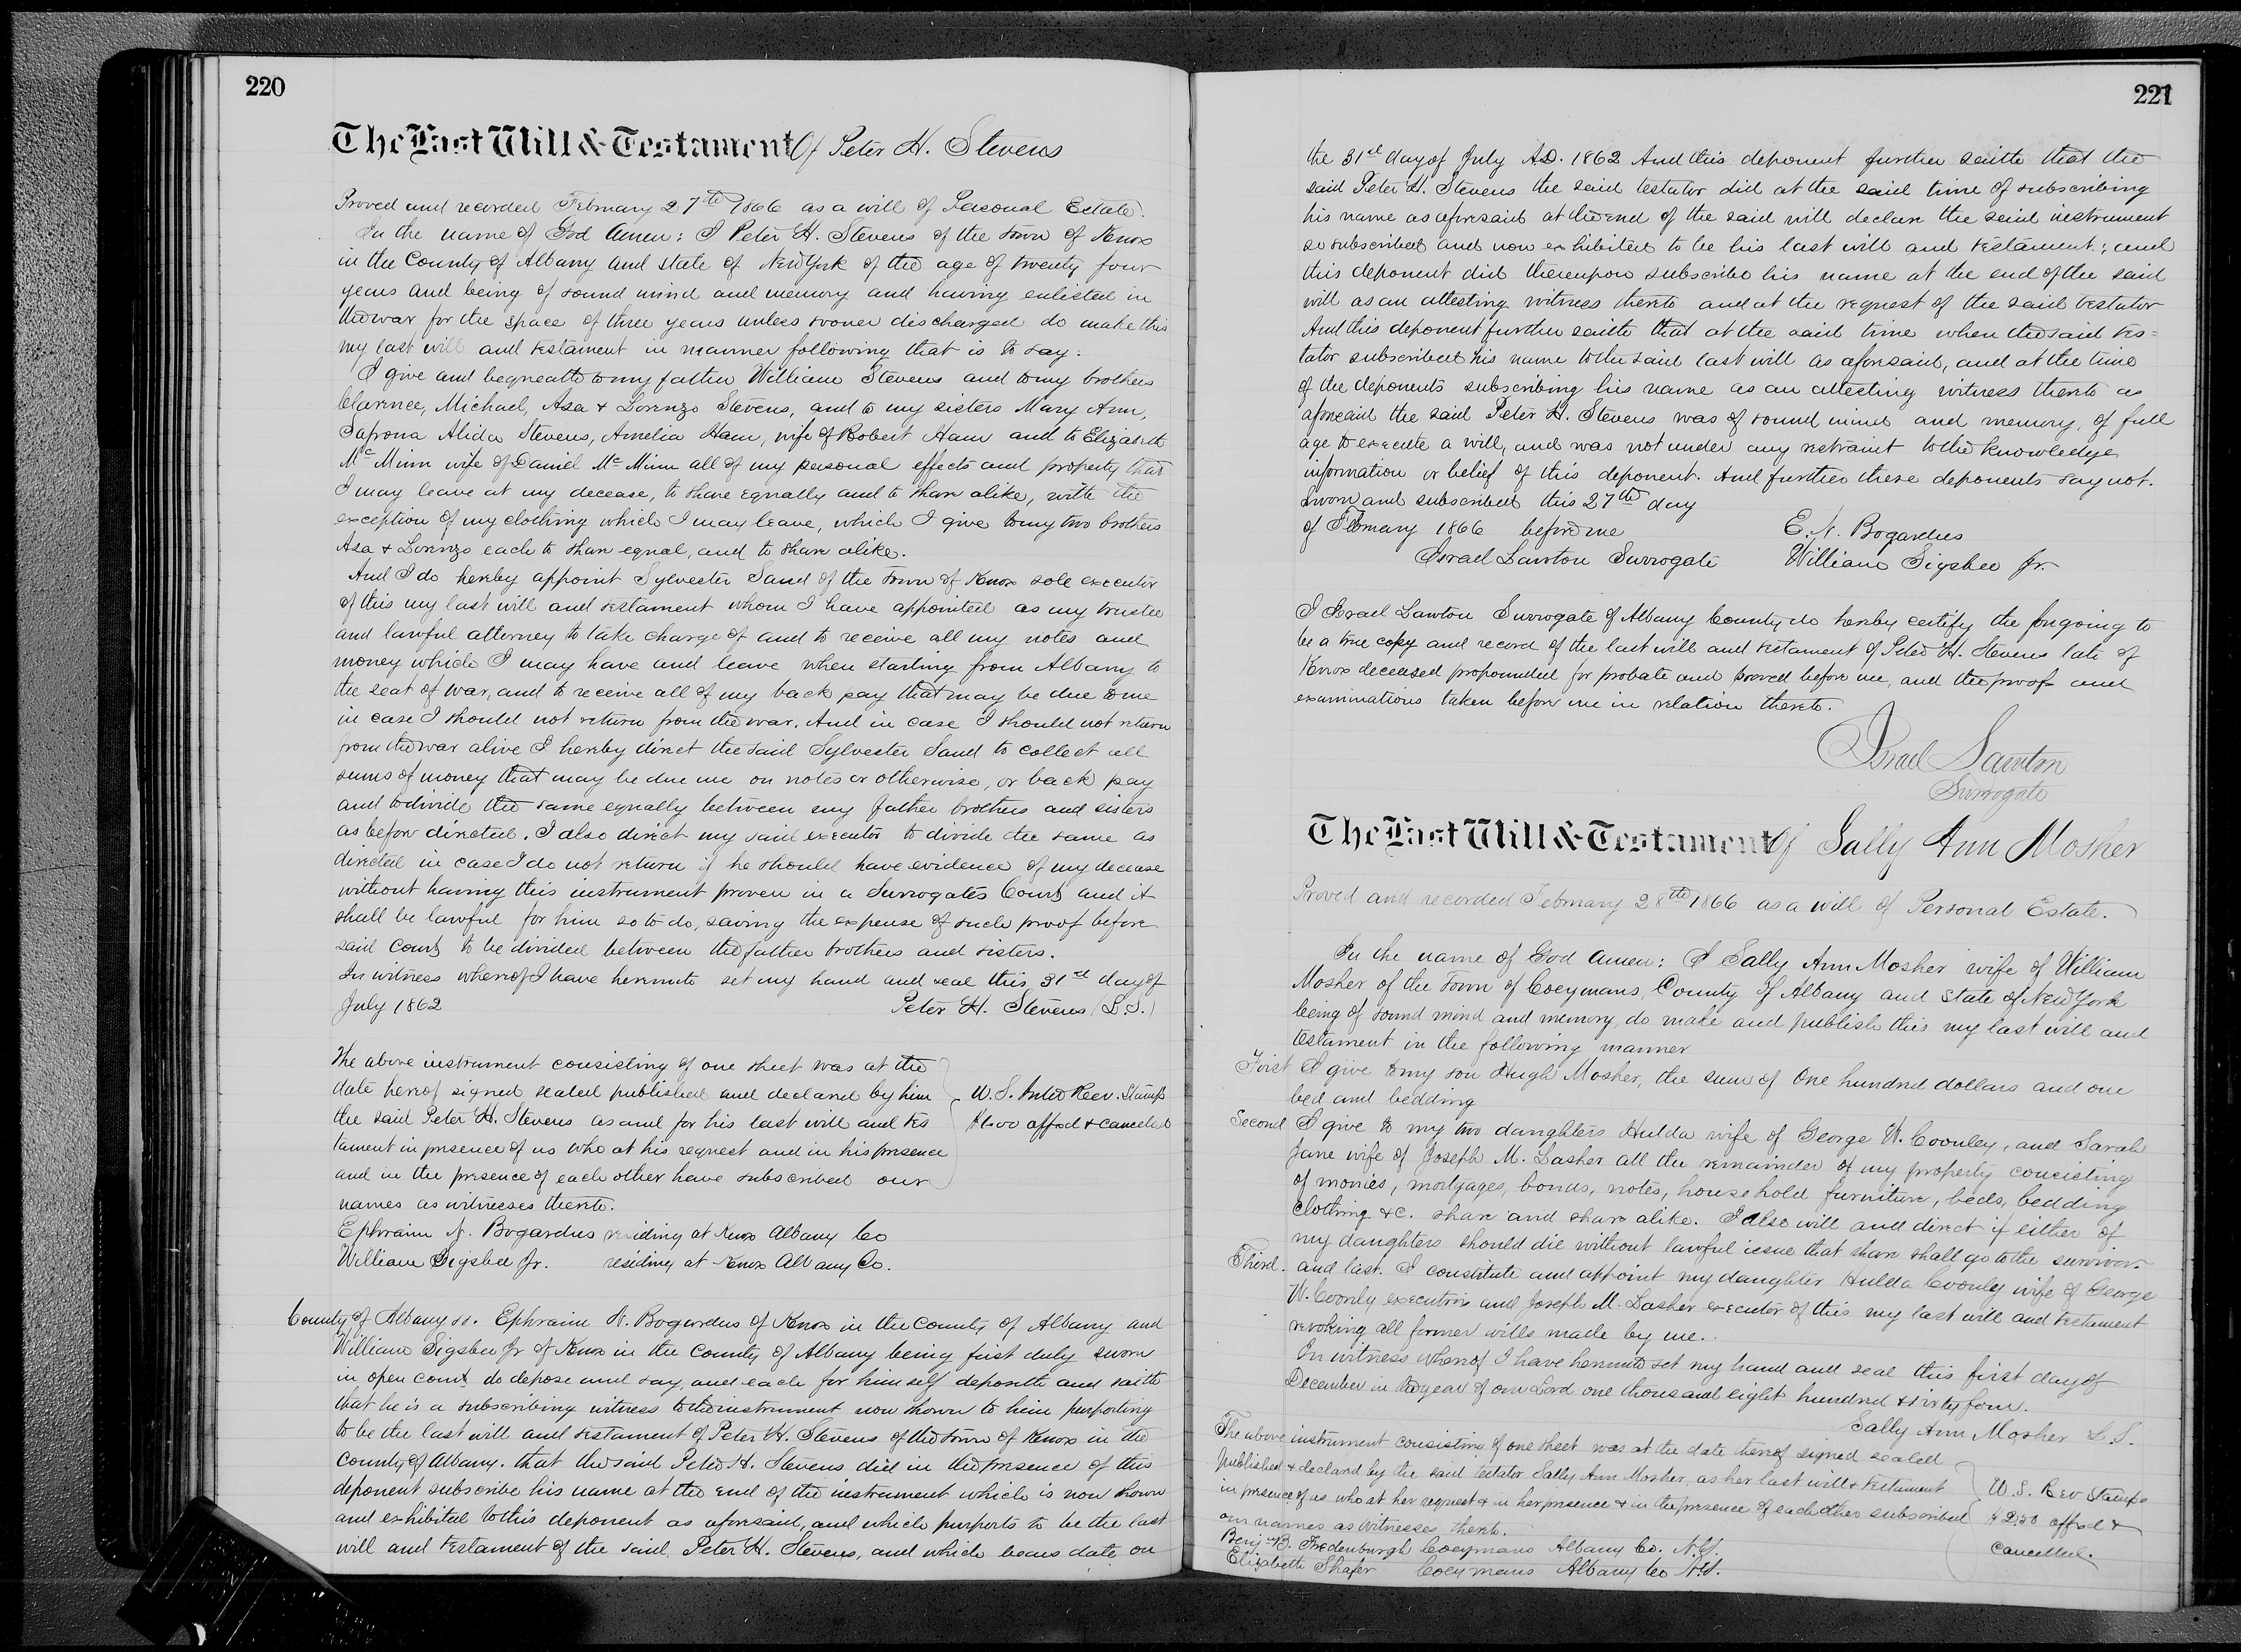 220
The Last Will & Testament Of Peter H. Stevens
Proved and recorded February 27th 1866 as a will of Personal Estate.
In the name of God Amen: I Peter H. Stevens of the Town of Knox
in the County of Albany and State of New York of the age of twenty four
years and being of sound mind and memory and having enlisted in
the war for the space of three years unless sooner discharged do make this
my last will and testament in manner following that is to say:
I give and bequeathe to my father William Stevens and to my brothers
Clarence, Michael, Asa & Lorenzo Stevens, and to my sisters Mary Ann,
Safrona Alida Stevens, Amelia Ham, wife of Robert Ham and to Elizabeth
Mc Minn wife of Daniel Mc Minn all of my personal effects and property that
I may leave at my decease, to share equally and to share alike, with the
exception of my clothing which I may leave, which I give to my two brothers
Asa & Lorenzo each to share equal, and to share alike.
And I do hereby appoint Sylvester Sand of the Town of Knox sole executor
of this my last will and testament whom I have appointed as my trustee
and lawful attorney to take charge of and to receive all my notes and
money which I may have and leave when starting from Albany to
the seat of war, and to receive all of my back pay that may be due to me
in case I should not return from the war. And in case I should not return
from the war alive I hereby direct the said Sylvester Sand to collect all
sums of money that may be due me on notes or otherwise, or back pay
and to divide the same equally between my father brothers and sisters
as before directed. I also direct my said executor to divide the same as
directed in case I do not return if he should have evidence of my decease
without having this instrument proven in a Surrogates Court and it
shall be lawful for him so to do, saving the expense of such proof before
said Court to be divided between the father brothers and sisters.
In witness whereof I have hereunto set my hand and seal this 31st day of
July 1862 Peter H. Stevens (L.S.)
The above instrument consisting of one sheet was at the
date hereof signed sealed published and declared by him
the said Peter H. Stevens as and for his last will and tes
tament in presence of us who at his request and in his presence
and in the presence of each other have subscribed our
names as witnesses thereto.
U.S. Inter Reev. Stamps
$1.00 affxd & canceled
Ephraim N. Bogardus residing at Knox Albany Co
William Sigsbee Jr. residing at Knox Albany Co.
County of Albany ss. Ephraim N. Bogardus of Knox in the County of Albany and
William Sigsbee Jr of Knox in the County of Albany being first duly sworn
in open court do depose and say, and each for himself deposeth and saith
that he is a subscribing witness to the instrument now shown to him purporting
to be the last will and testament of Peter H. Stevens of the Town of Knox in the
County of Albany. that the said Peter H. Stevens did in the presence of this
deponent subscribe his name at the end of the instrument which is now shown
and exhibited to this deponent as aforesaid, and which purports to be the last
will and testament of the said Peter H. Stevens, and which bears date on
221
the 31st day of July A.D. 1862 And this deponent further saith that the
said Peter H. Stevens the said testator did at the said time of subscribing
his name as aforesaid at the end of the said will declare the said instrument
so subscribed and now exhibited to be his last will and testament; and
this deponent did thereupon subscribe his name at the end of the said
will as an attesting witness thereto and at the request of the said testator
And this deponent further saith that at the said time when the said tes=
tator subscribed his name to the said last will as aforesaid, and at the time
of the deponents subscribing his name as an attesting witness thereto as
aforesaid the said Peter H. Stevens was of sound mind and memory, of full
age to execute a will, and was not under any restraint to the knowledge
information or belief of this deponent. And further these deponents say not.
Sworn and subscribed this 27th day
of February 1866 before me E. N. Bogardus
Israel Lawton Surrogate William Sigsbee Jr.
I Israel Lawton Surrogate of Albany County do hereby certify the foregoing to
be a true copy and record of the last will and testament of Peter H. Stevens late of
Knox deceased propounded for probate and proved before me, and the proofs and
examinations taken before me in relation thereto.
Israel Lawton
Surrogate
The Last Will & Testament Of Sally Ann Mosher
Proved and recorded February 28th 1866 as a will of Personal Estate.
In the name of God Amen: I Sally Ann Mosher wife of William
Mosher of the Town of Coeymans, County of Albany and State of New York
being of sound mind and memory, do make and publish this my last will and
testament in the following manner
First I give to my son Hugh Mosher, the sum of One hundred dollars and one
bed and bedding
Second I give to my two daughters Hulda wife of George W. Coonley, and Sarah
Jane wife of Joseph M. Lasher all the remainder of my property consisting
of monies, mortgages, bonds, notes, household furniture, beds, bedding
Clothing &c. share and share alike. I also will and direct if either of
my daughters should die without lawful issue that share shall go to the survivor.
Third. and last. I constitute and appoint my daughter Hulda Coonley wife of George
W. Coonly executrix and Joseph M. Lasher executor of this my last will and testament
revoking all former wills made by me.
In witness whereof I have hereunto set my hand and seal this first day of
December in the year of our Lord one thousand eight hundred & sixty four.
Sally Ann Mosher L.S.
The above instrument consisting of one sheet was at the date thereof signed sealed
published & declared by the said testator Sally Ann Mosher, as her last will & testament
in presence of us who at her request & in her presence & in the presence of each other subscribed
our names as witnesses thereto.
U.S. Rev Stamps
$2.50 affxd &
cancelled.
Benj. B. Fredenburgh Coeymans Albany Co. N.Y.
Elizabeth Shafer Coeymans Albany Co N.Y.